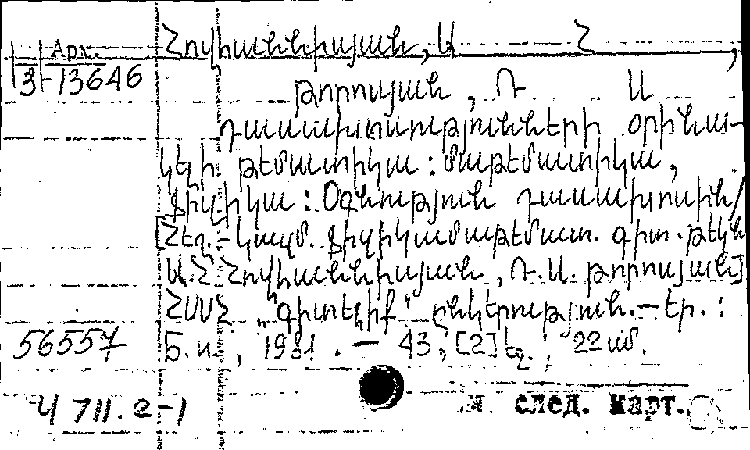 Арм.
3-13646
Հովհաննիսյան, Ա Հ ,
Թորոսյան, Ռ Ա
Դասախոսությունների օրինա-
կելի թեմատիկա: Մաթեմատիկա,
ֆիզիկա: Օգնություն դասախոսին/
[Հեղ.-կազմ. ֆիզիկամաթեմատ. գիտ. թեկն
Ա.Հ Հովհաննիսյան, Ռ.Ա. Թորոսյան]
ՀՍՍՀ "Գիտելիք" ընկերություն.—Եր.:
56557 Б.и., 1981.— 43, [2] էջ.; 22սմ.
Ч 711.2-1
см след. карт.